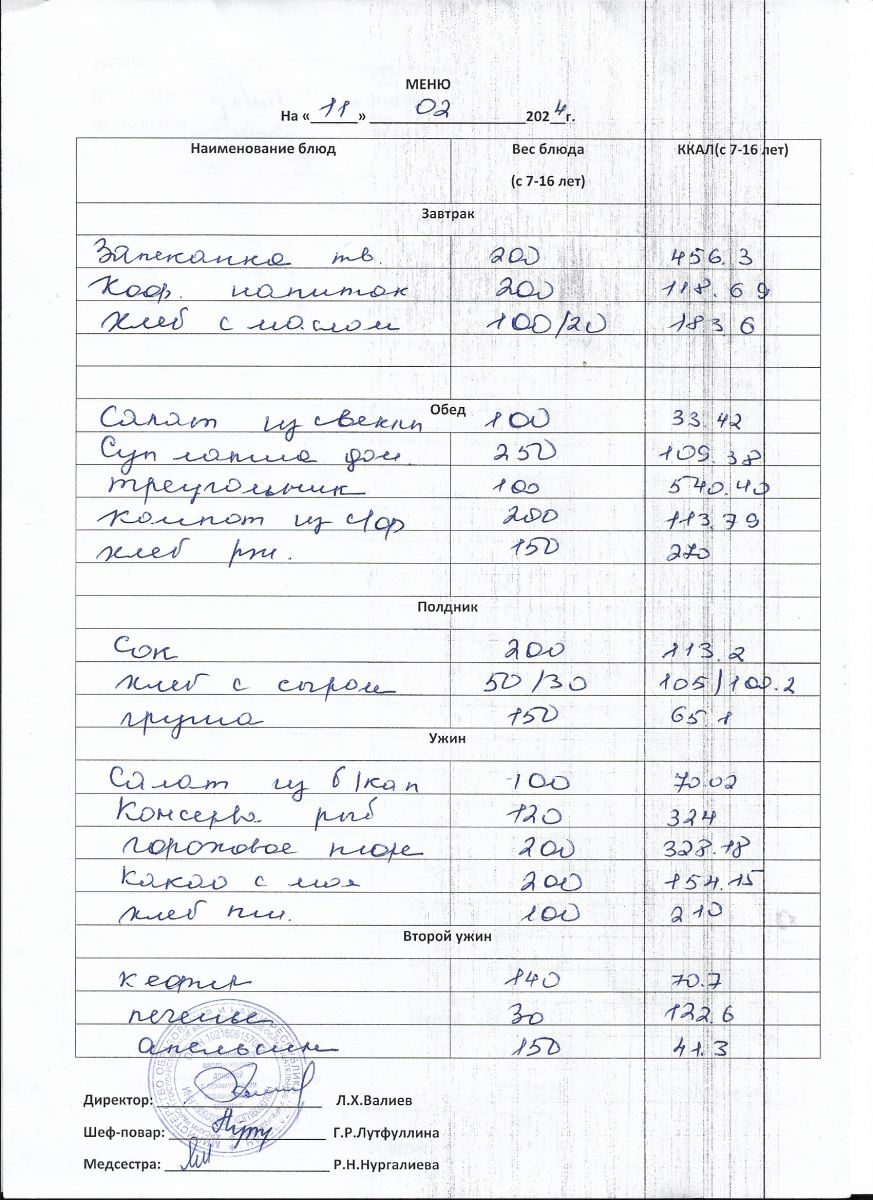 МЕНЮ
На « 11 » 02 2024 г.
Наименование блюд Вес блюда (с 7-16 лет) ККАЛ(с 7-16 лет)
Завтрак
Запеканка тв. 200 456.3
Коф. напиток 200 118.69
Хлеб с маслом 100/20 183 6
Обед
Салат из свеклы 100 33.42
Суп лапша дом. 250 109.38
треугольник 100 540.40
компот из с/фр 200 113.79
хлеб рж. 150 270
Полдник
Сок 200 113.2
хлеб с сыром 50/30 105/100.2
груша 150 65.1
Ужин
Салат из б/кап 100 70.02
Консерва рыб 120 324
гороховое пюре 200 328.18
какао с мол 200 154.15
хлеб пш. 100 210
Второй ужин
кефир 140 70.7
печенье 30 122.6
апельсин 150 41.3
Директор: Л.Х.Валиев
Шеф-повар: Г.Р.Лутфуллина
Медсестра: Р.Н.Нургалиева